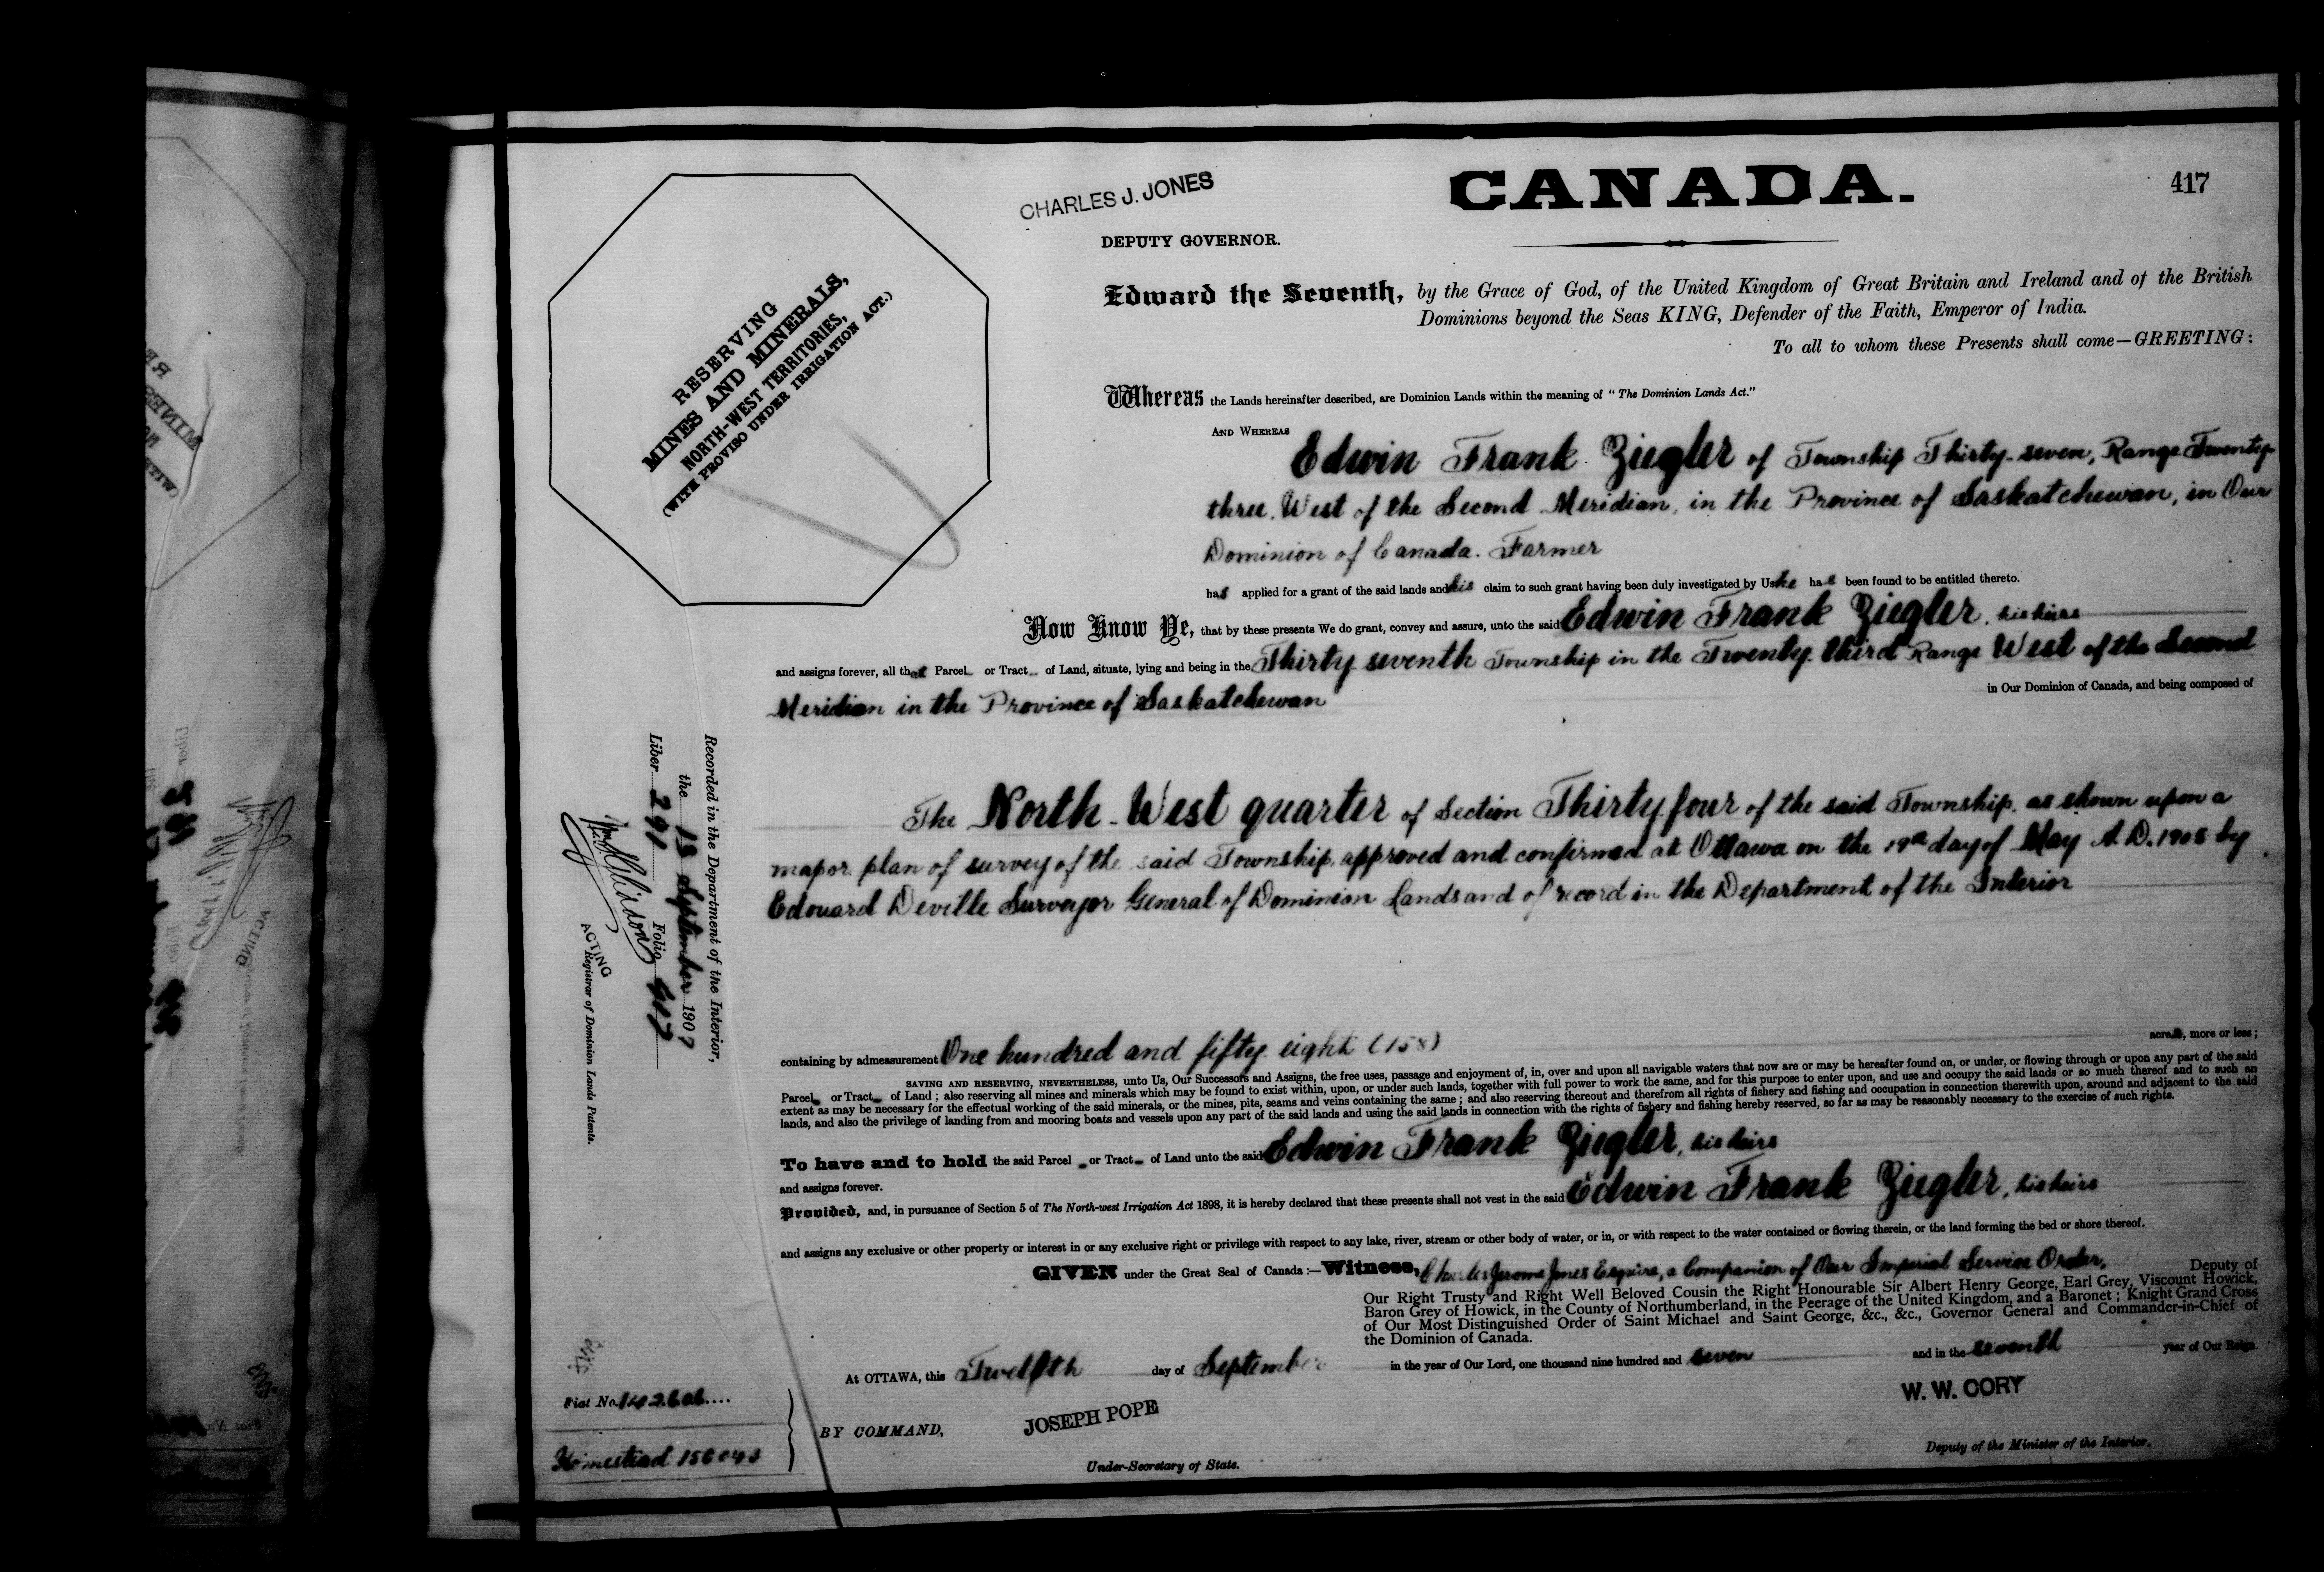 CHARLES J. JONES
CANADA.
417
DEPUTY GOVERNOR.
RESERVING
MINES AND MINERALS,
NORTH-WEST TERRITORIES,
(WITH PROVISO UNDER IRRIGATION ACT.)
Edward the Seventh, by the Grace of God, of the United Kingdom of Great Britain and Ireland and of the British
Dominions beyond the Seas KING, Defender of the Faith, Emperor of India.
To all to whom these Presents shall come—GREETING:
Whereas the Lands hereinafter described, are Dominion Lands within the meaning of "The Dominion Lands Act."
AND WHEREAS
Edwin Frank Ziegler of Township Thirty-seven, Range Twenty-
three, West of the Second Meridian, in the Province of Saskatchewan, in Our
Dominion of Canada. Farmer
has applied for a grant of the said lands and his claim to such grant having been duly investigated by Us he has been found to be entitled thereto.
Now Know Ye, that by these presents We do grant, convey and assure, unto the said Edwin Frank Ziegler, his heirs
and assigns forever, all that Parcel or Tract of Land, situate, lying and being in the Thirty seventh Township in the Twenty third Range West of the Second
in Our Dominion of Canada, and being composed of
Meridian in the Province of Saskatchewan
The North-West quarter of Section Thirty four of the said Township, as shown upon a
map or plan of survey of the said Township, approved and confirmed at Ottawa on the day of May A.D. by
Edouard Deville Surveyor General of Dominion Lands and of record in the Department of the Interior
Recorded in the Department of the Interior,
the 13 September 1907
Liber 291 Folio 417
ACTING
Registrar of Dominion Lands Patents.
containing by admeasurement One hundred and fifty eight (158) acres, more or less;
SAVING AND RESERVING, NEVERTHELESS, unto Us, Our Successors and Assigns, the free uses, passage and enjoyment of, in, over and upon all navigable waters that now are or may be hereafter found on, or under, or flowing through or upon any part of the said
Parcel or Tract of Land; also reserving all mines and minerals which may be found to exist within, upon, or under such lands, together with full power to work the same, and for this purpose to enter upon, and use and occupy the said lands or so much thereof and to such an
extent as may be necessary for the effectual working of the said minerals, or the mines, pits, seams and veins containing the same; and also reserving thereout and therefrom all rights of fishery and fishing and occupation in connection therewith upon, around and adjacent to the said
lands, and also the privilege of landing from and mooring boats and vessels upon any part of the said lands and using the said lands in connection with the rights of fishery and fishing hereby reserved, so far as may be reasonably necessary to the exercise of such rights.
To have and to hold the said Parcel or Tract of Land unto the said Edwin Frank Ziegler, his heirs
and assigns forever.
Provided, and, in pursuance of Section 5 of The North-west Irrigation Act 1898, it is hereby declared that these presents shall not vest in the said Edwin Frank Ziegler, his heirs
and assigns any exclusive or other property or interest in or any exclusive right or privilege with respect to any lake, river, stream or other body of water, or in, or with respect to the water contained or flowing therein, or the land forming the bed or shore thereof.
GIVEN under the Great Seal of Canada:—Witness, Charles Jerome Jones Esquire, a Companion of Our Imperial Service Order, Deputy of
Our Right Trusty and Right Well Beloved Cousin the Right Honourable Sir Albert Henry George, Earl Grey, Viscount Howick,
Baron Grey of Howick, in the County of Northumberland, in the Peerage of the United Kingdom, and a Baronet; Knight Grand Cross
of Our Most Distinguished Order of Saint Michael and Saint George, &c., &c., Governor General and Commander-in-Chief of
the Dominion of Canada.
At OTTAWA, this Twelfth day of September in the year of Our Lord, one thousand nine hundred and seven and in the seventh year of Our Reign
W. W. CORY
Fiat No. 142606
BY COMMAND,
JOSEPH POPE
Homestead 156043
Deputy of the Minister of the Interior.
Under-Secretary of State.